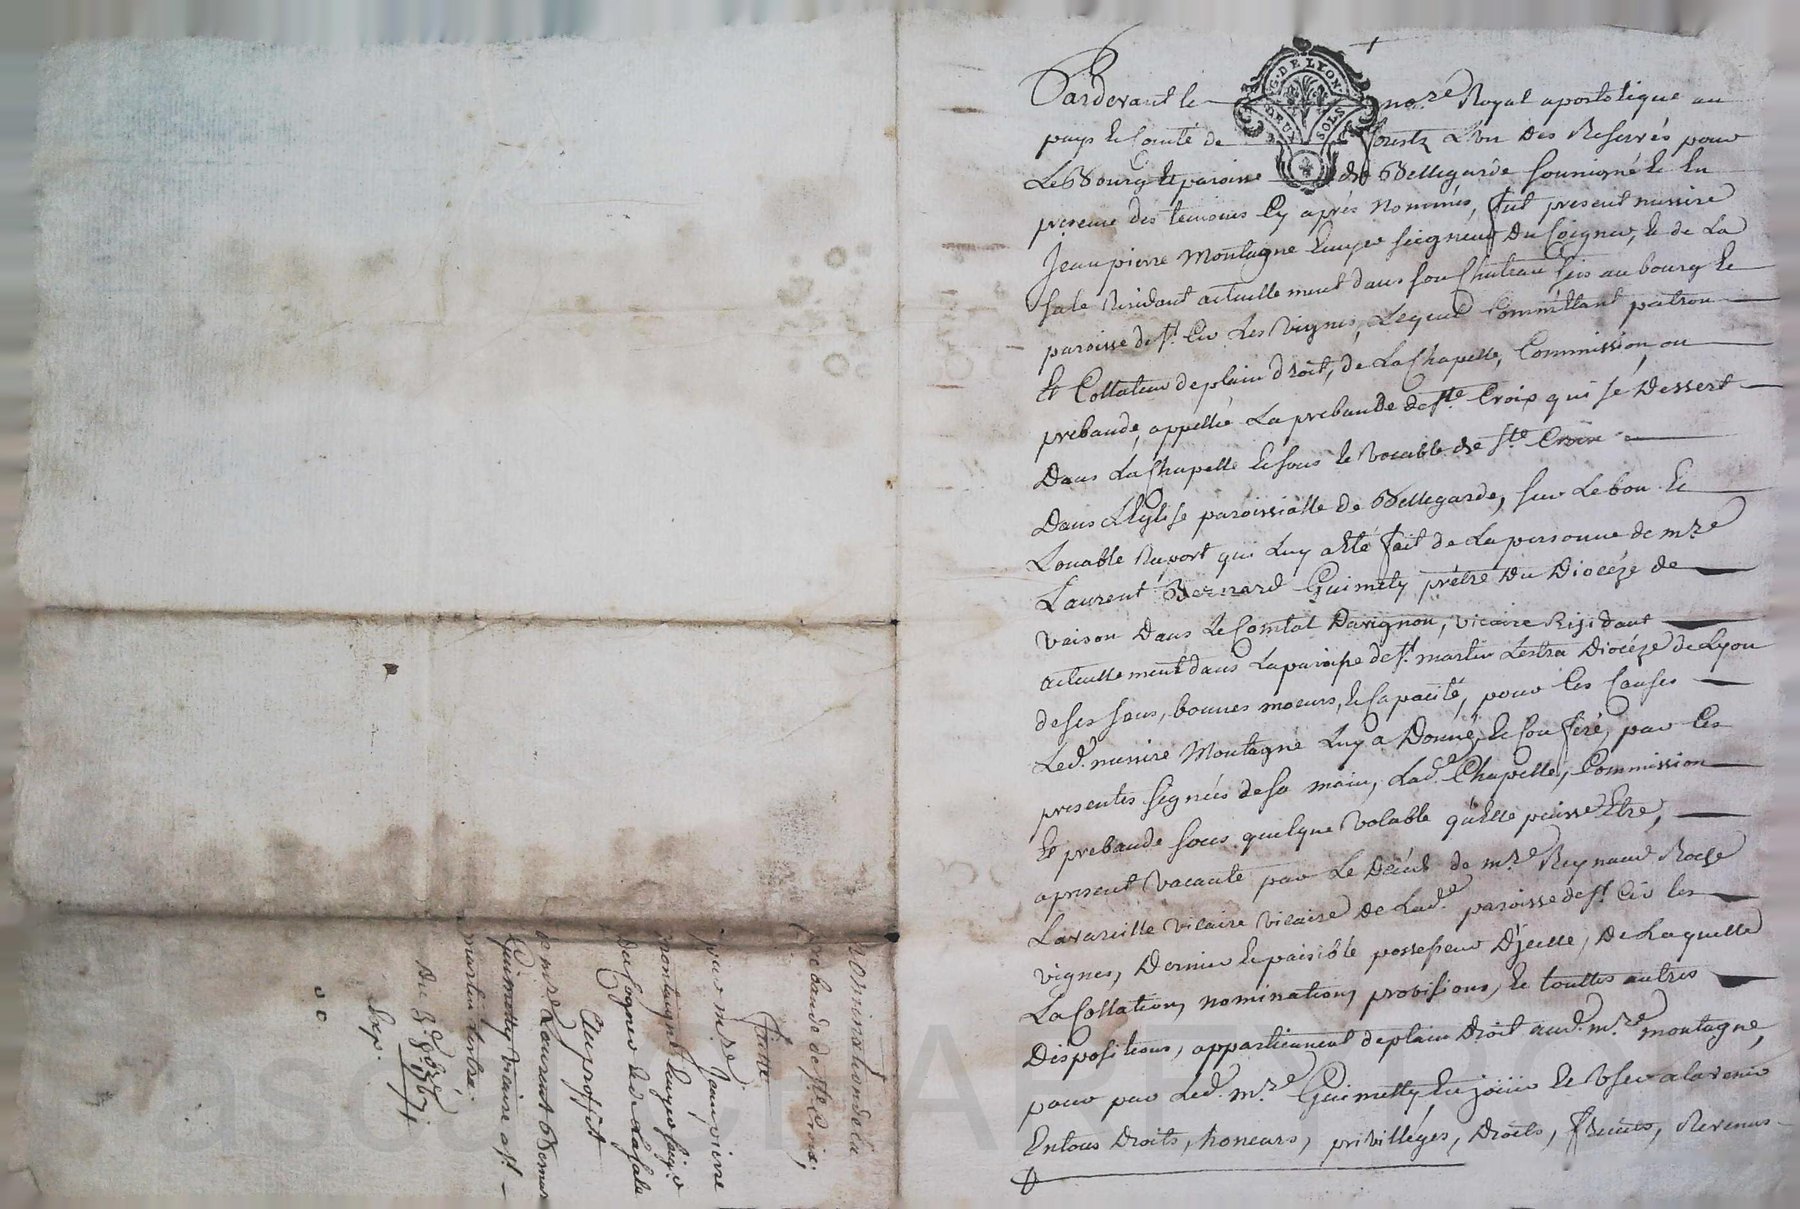 G. DE LYON
DEUX SOLS
Pardevant le no.re Royal apostolique au
pays & Comté de forestz L'un des Reservés pour
Le Bourg & paroisse de Bellegarde soussigné & En
presence des temoins Cy apres nommés, fut present messire
Jean pierre Montagne Ecuyer seigneur Du Poigneu, & de La
sale Residant actuellement dans son Chateau sis au bourg &
paroisse de st. Cir Les Vignes, Lequel Committant patron
& Collateur de plain droit, de La Chapelle, Commission, ou
prebande, appellée La prebande de ste. Croix qui se Dessert
Dans La Chapelle & sous le Vocable de ste. Croix
Dans L'Eglise paroissialle de Bellegarde, sur Le bon &
Louable Raport qui Luy a Eté fait de La personne de mre.
Laurent Bernard Guimety prêtre Du Diocéze de
vaison Dans Le Comtat Davignon, vicaire Residant
actuellement dans La paroisse de st. martin Lestra Diocéze de Lyon
de ses sens, bonnes moeurs, & Capacité, pour Ces Causes
Led. messire Montagne Luy a Donné, & Conferé, par Ces
presentes signées de sa main, Lad.e Chapelle, Commission
& prebande sous quelque Volable qu'elle puisse Etre,
apresent Vacante par Le Décés de mre. Reynaud Roche
Lavareille vicaire vicaire de Lad.e paroisse de st. Cir les
vignes, Dernier & paisible possesseur D'jcelle, De Laquelle
La Collation, nomination, provisions, & touttes autres
Dispositions, appartiennent de plain Droit aud. mre. montagne,
pour par Led. mre. Guimetty En joüir & User a lavenir
En tous Droits, honeurs, privilléges, Droits, fruits, Revenus
nomination de la
prebande de ste. Croix,
faitte
par mre. Jean pierre
montagne Ecuyer seigr.
du Pogneu & de La sale
Au proffit
de mre. Laurent Bernar
Guimetty vicaire a st.
martin lestra
Du 3e 8bre 1767
Exp.